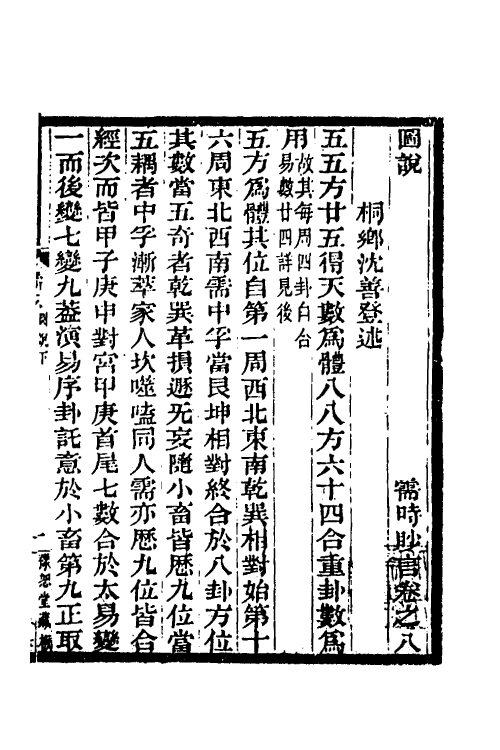 圖說
需時眇言卷之八
桐鄉沈善登述
五五方廿五得天數爲體八八方六十四合重卦數爲
用故其每周四卦自合
易數廿四詳見後
五方爲體其位自第一周西北東南乾巽相對始第十
六周東北西南需中孚當艮坤相對終合於八卦方位
其數當五奇者乾巽革損遯无妄隨小畜皆歷九位當
五耦者中孚漸萃家人坎噬嗑同人需亦歷九位皆合
經次而皆甲子庚申對宮甲庚首尾七數合於太易變
一而後變七變九葢演易序卦託意於小畜第九正取
圖說下
一
豫恕堂藏板